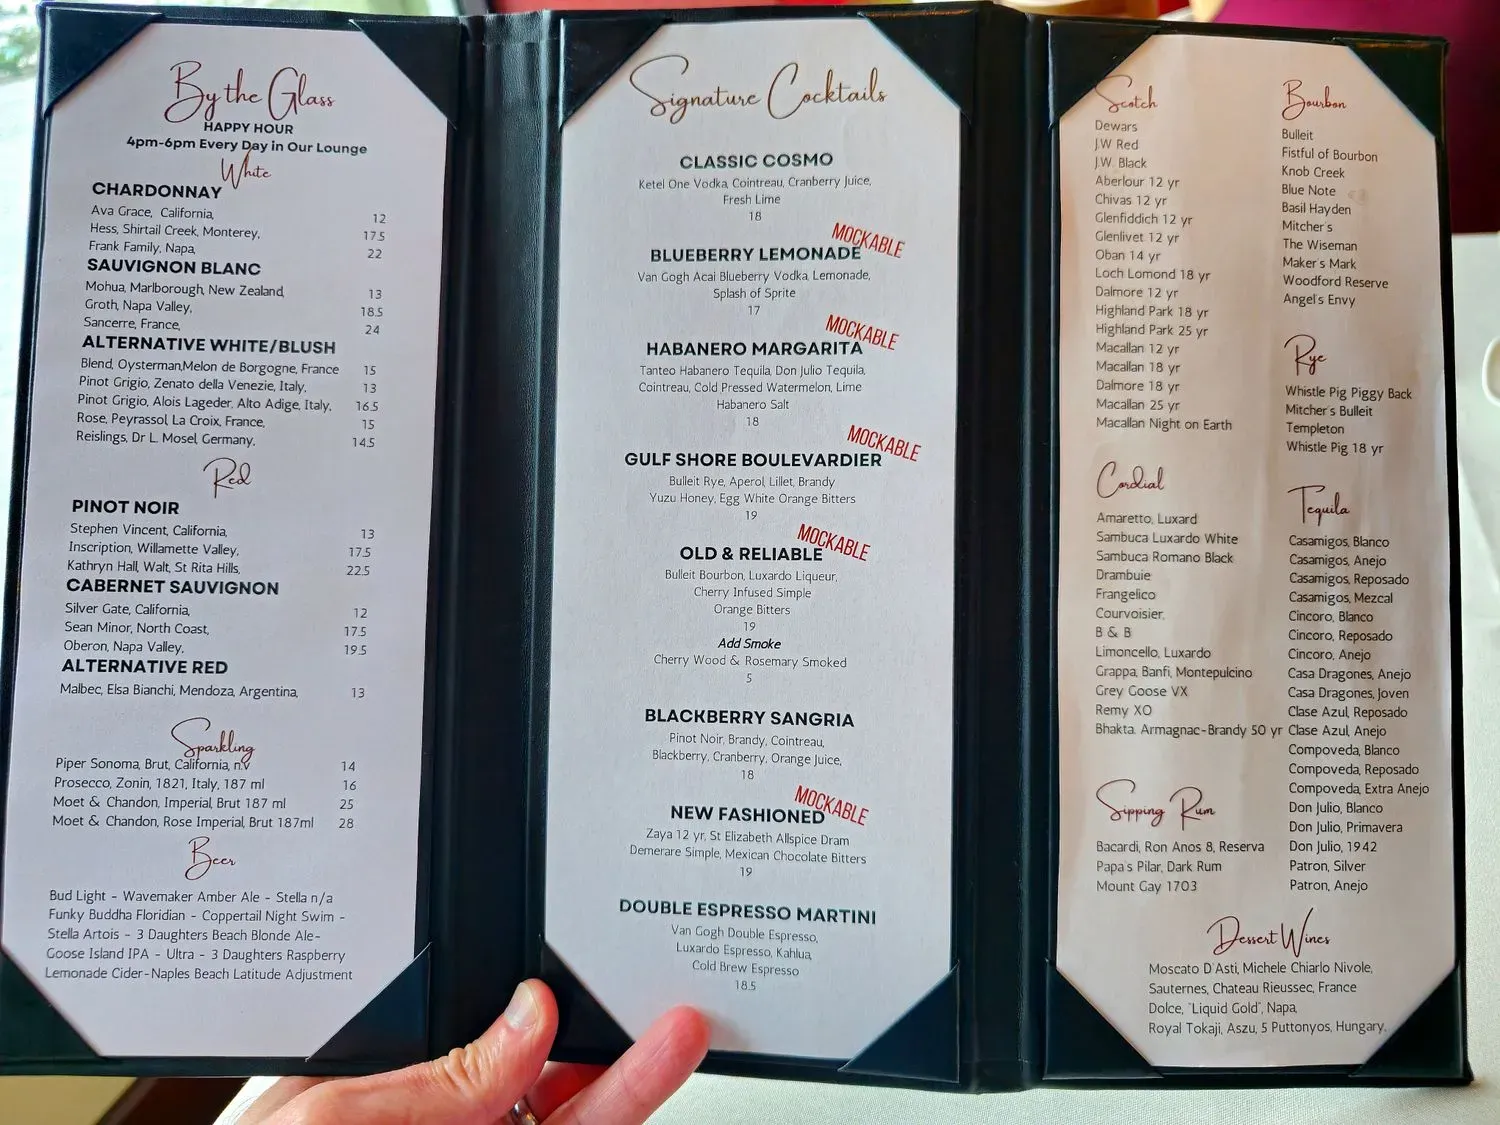 By the Glass
HAPPY HOUR
4pm-6pm Every Day in Our Lounge
White
CHARDONNAY
Ava Grace, California, 12
Hess, Shirtail Creek, Monterey, 17.5
Frank Family, Napa, 22
SAUVIGNON BLANC
Mohua, Marlborough, New Zealand, 13
Groth, Napa Valley, 18.5
Sancerre, France, 24
ALTERNATIVE WHITE/BLUSH
Blend, Oysterman,Melon de Borgogne, France 15
Pinot Grigio, Zenato della Venezie, Italy, 13
Pinot Grigio, Alois Lageder, Alto Adige, Italy, 16.5
Rose, Peyrassol, La Croix, France, 15
Reislings, Dr L. Mosel, Germany, 14.5
Red
PINOT NOIR
Stephen Vincent, California, 13
Inscription, Willamette Valley, 17.5
Kathryn Hall, Walt, St Rita Hills, 22.5
CABERNET SAUVIGNON
Silver Gate, California, 12
Sean Minor, North Coast, 17.5
Oberon, Napa Valley, 19.5
ALTERNATIVE RED
Malbec, Elsa Bianchi, Mendoza, Argentina, 13
Sparkling
Piper Sonoma, Brut, California, n.v 14
Prosecco, Zonin, 1821, Italy, 187 ml 16
Moet & Chandon, Imperial, Brut 187 ml 25
Moet & Chandon, Rose Imperial, Brut 187ml 28
Beer
Bud Light - Wavemaker Amber Ale - Stella n/a
Funky Buddha Floridian - Coppertail Night Swim -
Stella Artois - 3 Daughters Beach Blonde Ale-
Goose Island IPA - Ultra - 3 Daughters Raspberry
Lemonade Cider-Naples Beach Latitude Adjustment
Signature Cocktails
CLASSIC COSMO
Ketel One Vodka, Cointreau, Cranberry Juice,
Fresh Lime
18
MOCKABLE
BLUEBERRY LEMONADE
Van Gogh Acai Blueberry Vodka, Lemonade,
Splash of Sprite
17
MOCKABLE
HABANERO MARGARITA
Tanteo Habanero Tequila, Don Julio Tequila,
Cointreau, Cold Pressed Watermelon, Lime
Habanero Salt
18
MOCKABLE
GULF SHORE BOULEVARDIER
Bulleit Rye, Aperol, Lillet, Brandy
Yuzu Honey, Egg White Orange Bitters
19
MOCKABLE
OLD & RELIABLE
Bulleit Bourbon, Luxardo Liqueur,
Cherry Infused Simple
Orange Bitters
19
Add Smoke
Cherry Wood & Rosemary Smoked
5
BLACKBERRY SANGRIA
Pinot Noir, Brandy, Cointreau,
Blackberry, Cranberry, Orange Juice,
18
MOCKABLE
NEW FASHIONED
Zaya 12 yr, St Elizabeth Allspice Dram
Demerare Simple, Mexican Chocolate Bitters
19
DOUBLE ESPRESSO MARTINI
Van Gogh Double Espresso,
Luxardo Espresso, Kahlua,
Cold Brew Espresso
18.5
Scotch
Dewars
J.W Red
J.W. Black
Aberlour 12 yr
Chivas 12 yr
Glenfiddich 12 yr
Glenlivet 12 yr
Oban 14 yr
Loch Lomond 18 yr
Dalmore 12 yr
Highland Park 18 yr
Highland Park 25 yr
Macallan 12 yr
Macallan 18 yr
Dalmore 18 yr
Macallan 25 yr
Macallan Night on Earth
Cordial
Amaretto, Luxard
Sambuca Luxardo White
Sambuca Romano Black
Drambuie
Frangelico
Courvoisier,
B & B
Limoncello, Luxardo
Grappa, Banfi, Montepulcino
Grey Goose VX
Remy XO
Bhakta. Armagnac-Brandy 50 yr
Sipping Rum
Bacardi, Ron Anos 8, Reserva
Papa's Pilar, Dark Rum
Mount Gay 1703
Bourbon
Bulleit
Fistful of Bourbon
Knob Creek
Blue Note
Basil Hayden
Mitcher's
The Wiseman
Maker's Mark
Woodford Reserve
Angel's Envy
Rye
Whistle Pig Piggy Back
Mitcher's Bulleit
Templeton
Whistle Pig 18 yr
Tequila
Casamigos, Blanco
Casamigos, Anejo
Casamigos, Reposado
Casamigos, Mezcal
Cincoro, Blanco
Cincoro, Reposado
Cincoro, Anejo
Casa Dragones, Anejo
Casa Dragones, Joven
Clase Azul, Reposado
Clase Azul, Anejo
Compoveda, Blanco
Compoveda, Reposado
Compoveda, Extra Anejo
Don Julio, Blanco
Don Julio, Primavera
Don Julio, 1942
Patron, Silver
Patron, Anejo
Dessert Wines
Moscato D'Asti, Michele Chiarlo Nivole,
Sauternes, Chateau Rieussec, France
Dolce, "Liquid Gold", Napa,
Royal Tokaji, Aszu, 5 Puttonyos, Hungary,